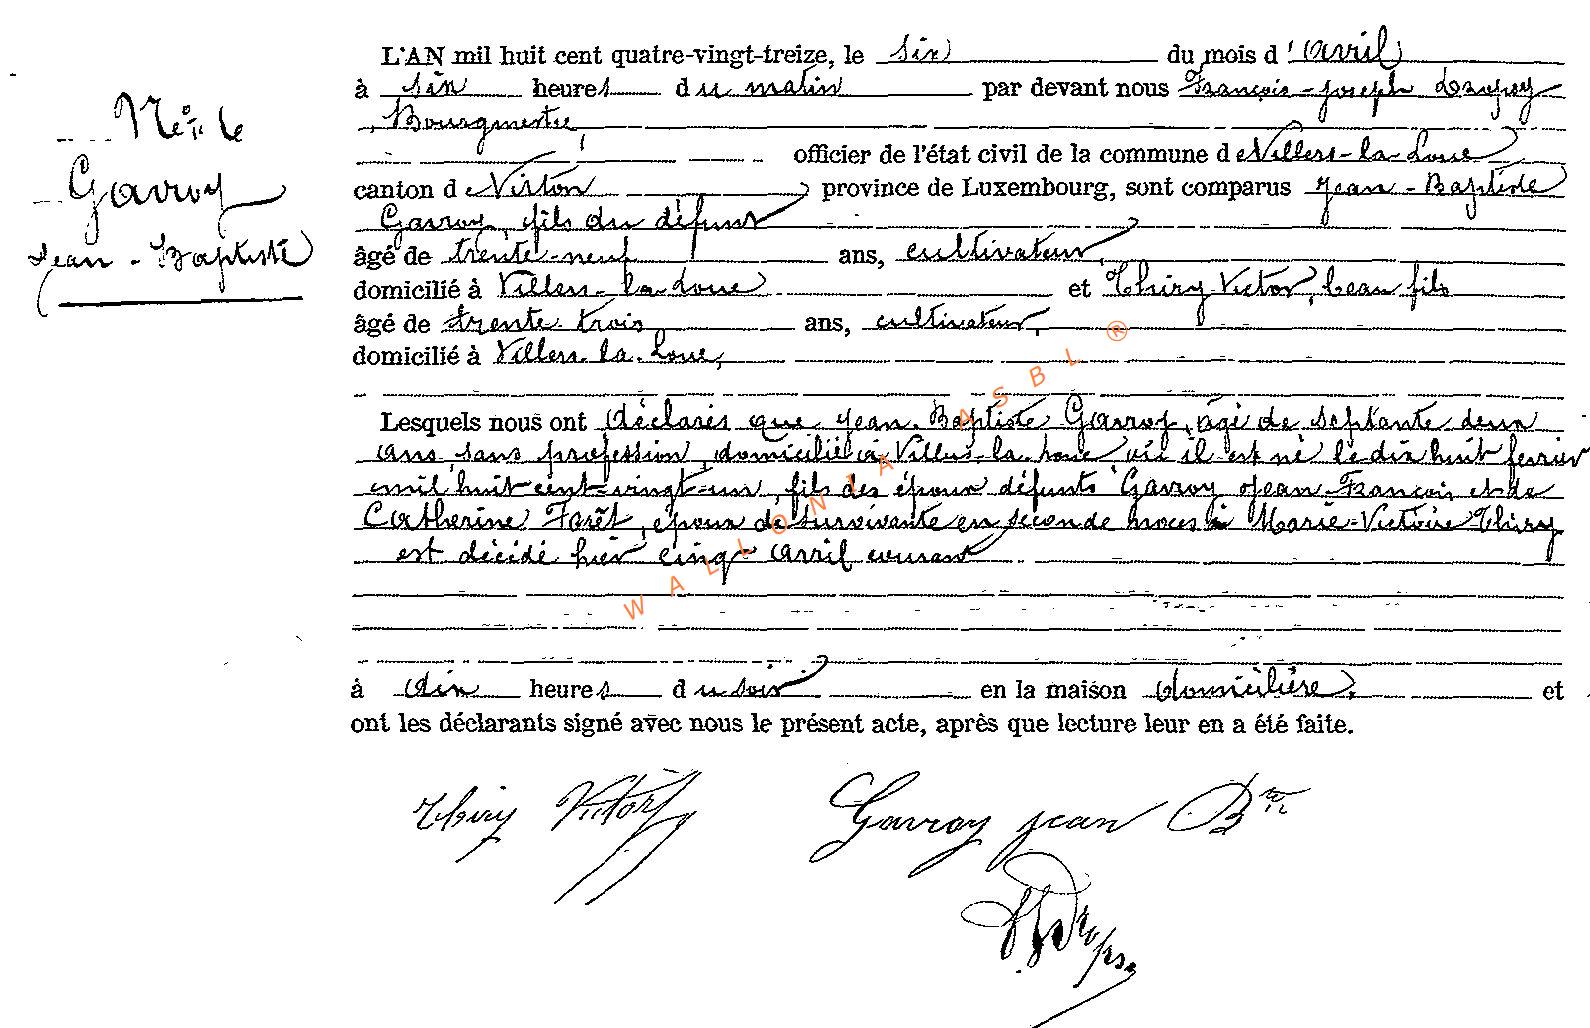 L'AN mil huit cent quatre-vingt-treize, le six du mois d'avril
à six heures du matin par devant nous François-Joseph
Bourgmestre,
officier de l'état civil de la commune de Villers-la-Loue
canton de Virton province de Luxembourg, sont comparus Jean-Baptiste
Gavroy, fils du défunt
âgé de trente-neuf ans, cultivateur,
domicilié à Villers-la-Loue et Thiry Victor, beau fils
âgé de trente-trois ans, cultivateur,
domicilié à Villers-la-Loue,
Lesquels nous ont déclarés que Jean-Baptiste Gavroy, âgé de septante deux
ans, sans profession, domicilié à Villers-la-Loue où il est né le dix huit fevrier
mil huit cent-vingt-un, fils des époux défunts Gavroy Jean-François et de
Catherine Forêt, époux de survivante en seconde noces à Marie-Victoire Thiry
est décédé hier cinq avril courant
à dix heures du soir en la maison domicilière, et
ont les déclarants signé avec nous le présent acte, après que lecture leur en a été faite.
N° 6
Gavroy
Jean-Baptiste
Thiry Victor Gavroy jean Bte
WALLONIA ASBL ®